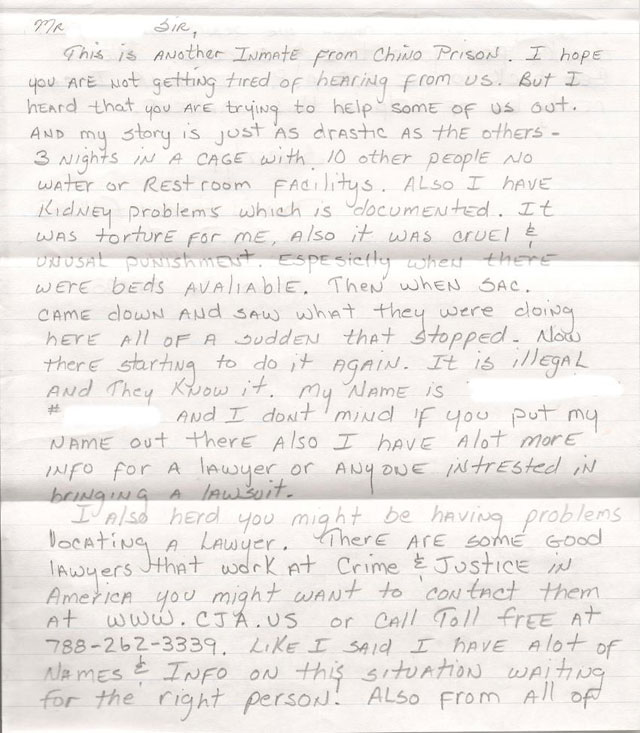 Mr Sir,
This is another Inmate from Chino Prison. I hope
you are not getting tired of hearing from us. But I
heard that you are trying to help some of us out.
And my story is just as drastic as the others -
3 nights in a cage with 10 other people no
water or Restroom facilitys. Also I have
Kidney problems which is documented. It
was torture for me, Also it was cruel &
unusal punishment. Espesielly when there
were beds avaliable. Then when Sac.
came down and saw what they were doing
here all of a sudden that stopped. Now
there starting to do it again. It is illegal
and They Know it. My Name is
# And I dont mind if you put my
name out there Also I have alot more
info for a lawyer or anyone intrested in
bringing a lawsuit.
I also herd you might be having problems
locating a Lawyer. There are some good
lawyers that work at Crime & Justice in
America you might want to contact them
at www.CJA.US or call Toll free at
788-262-3339. Like I said I have alot of
Names & Info on this situation waiting
for the right person! Also from all of